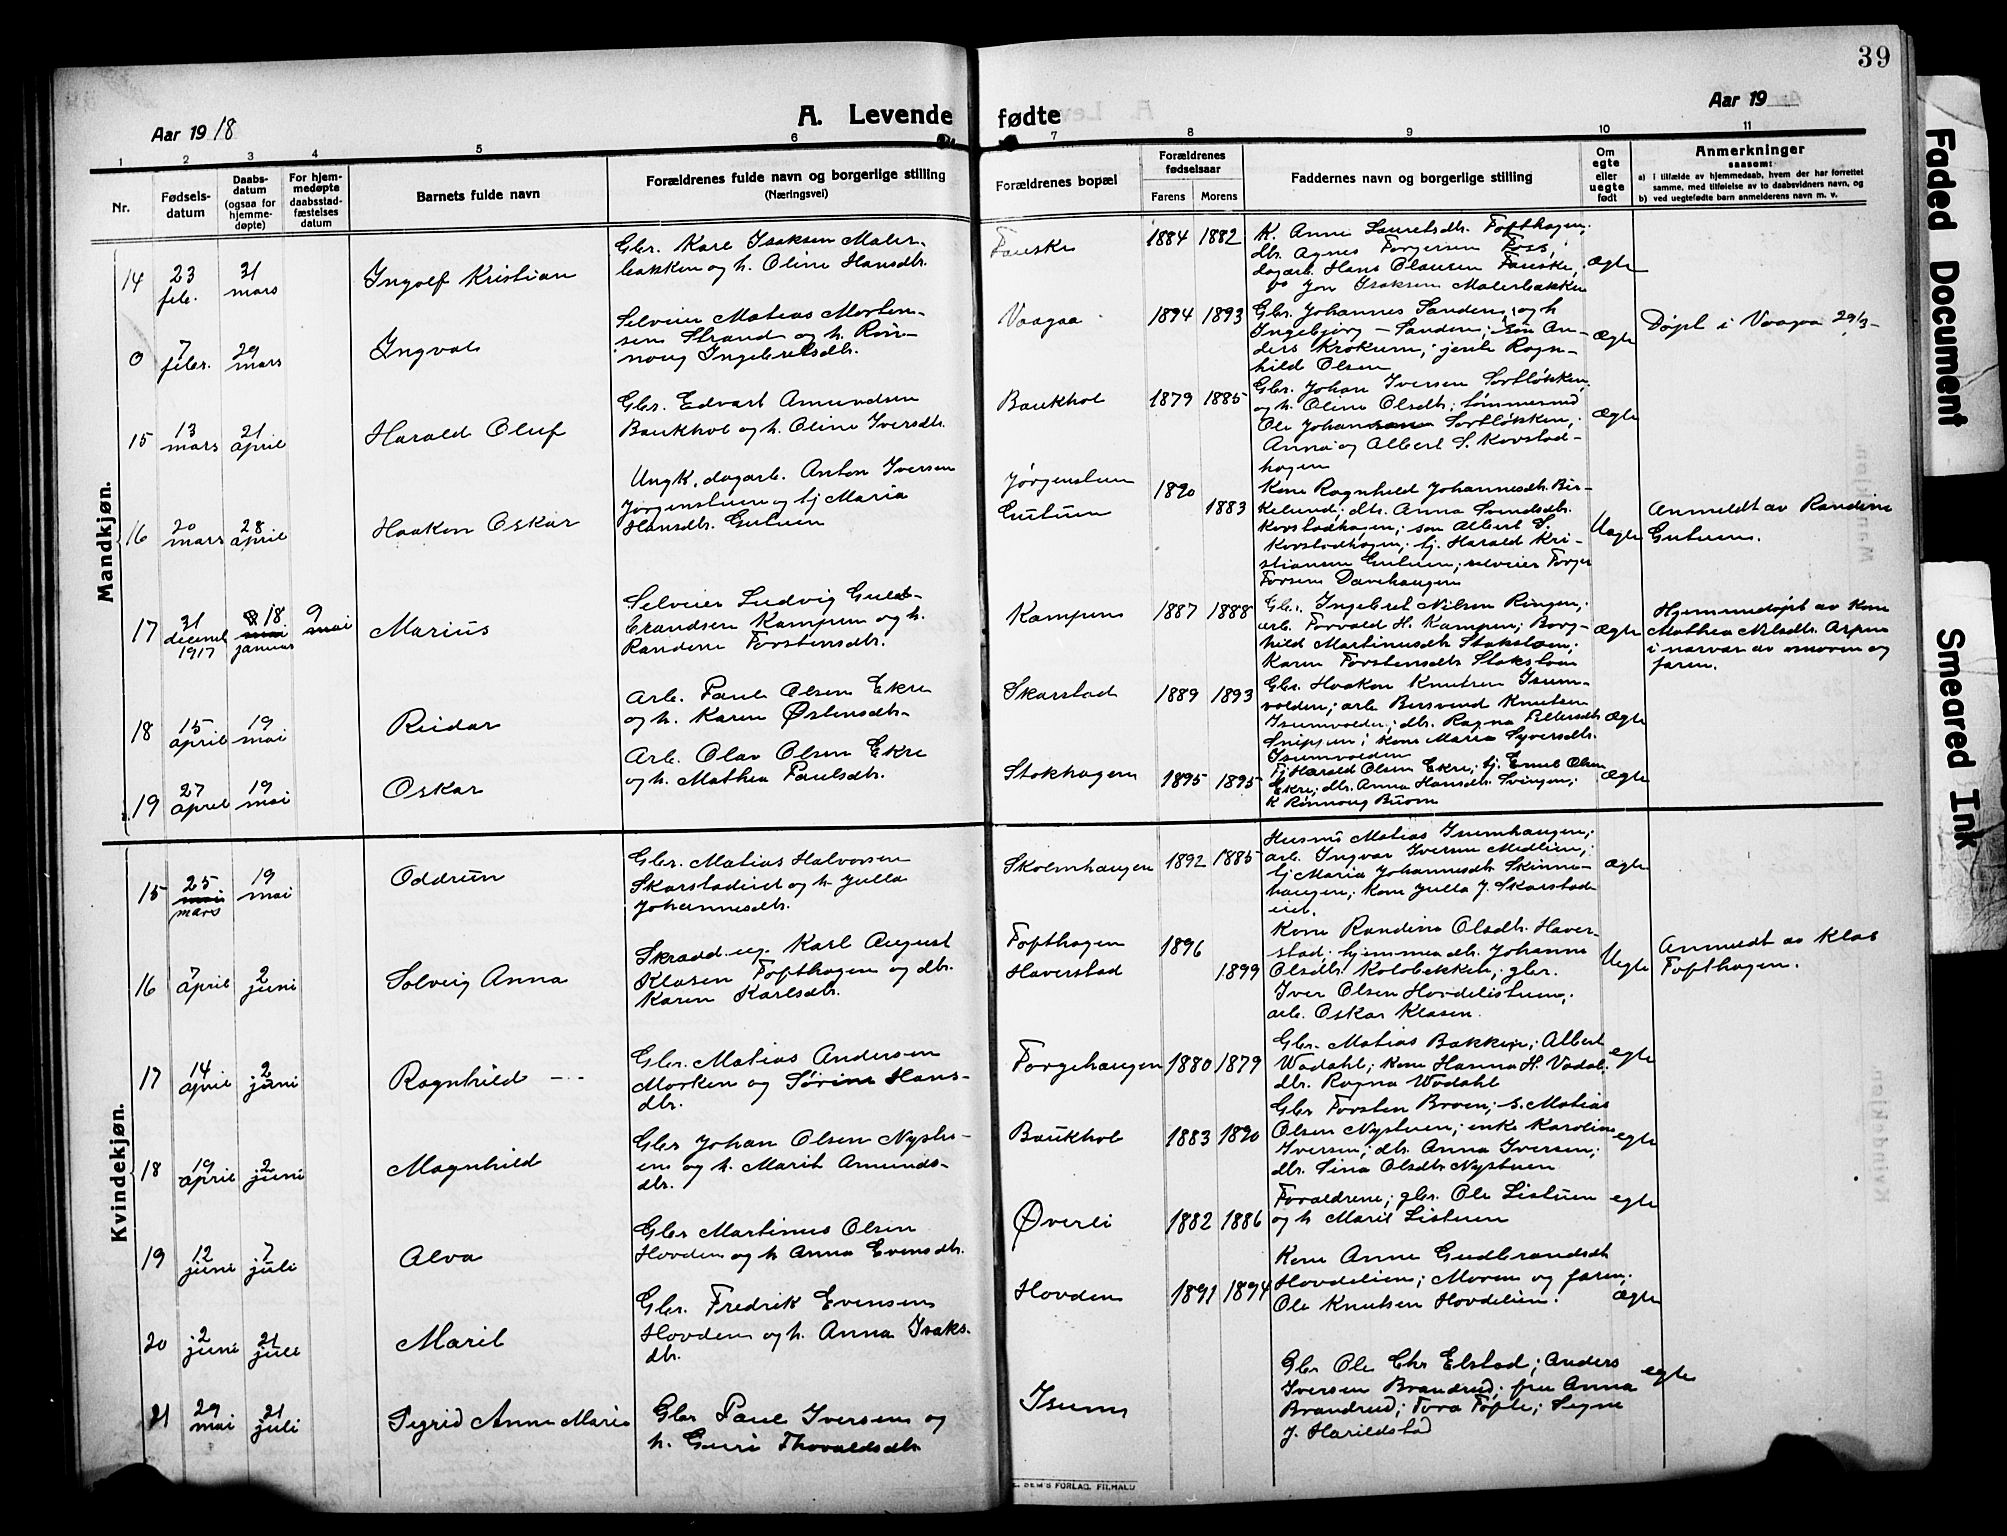 39
Aar 1918
A. Levende fødte
Aar 19
1 2 3 4 5 6 7 8 9 10 11
Nr.
Fødsels-
datum
Daabs-
datum
(ogsaa for
hjemme-
døpte)
For hjem-
medøpte
daabsstad-
fæstelses
datum
Barnets fulde navn
Forældrenes fulde navn og borgerlige stilling
(Næringsvei)
Forældrenes bopæl
Forældrenes
fødselsaar
Farens Morens
Faddernes navn og borgerlige stilling
Om
egte
eller
uegte
født
Anmerkninger
saasom:
a) i tilfælde av hjemmedaab, hvem der har forrettet
samme, med tilføielse av to daabsvidners navn, og
b) ved uegtefødte barn anmelderens navn m. v.
Mandkjøn.
14 23 feb. 31 mars Ingolf Kristian
Gbr. Karl Isaksen Maler-
bakken og h. Oline Hansdtr.
Fauske 1884 1882
K. Anne Lauretsdtr. Tofthagen;
dtr. Agnes Torgersen Foss;
dagarb. Hans Olausen Fauske;
Jon Isaksen Malerbakken
ægte
0 7 febr. 29 mars Ingvald
Selveier Matias Morten-
sen Strand og h. Røn-
noug Ingebretsdtr.
Vaagaa 1894 1893
Gbr. Johannes Sanden, og h
Ingebjørg - Sanden; søn An-
ders Krokum; jente Ragn-
hild Olsen
ægte
Døpt i Vaagaa 29/3-
15 13 mars 21 april Harald Oluf
Gbr. Edvart Amundsen
Baukhol og h. Oline Iversdtr.
Baukhol 1879 1885
Gbr. Johan Iversen Sorfløkken,
og h. Oline Olsdtr; tømmermd
Ole Johansen Sorfløkken;
Anna og Albert S. Kovstad-
hagen
ægte
16 20 mars 28 april Haakon Oskar
Ungk. dagarb. Anton Iversen
Jørgenstuen og tj Maria
Hansdtr. Gutuen
Jørgenstuen
Gutuen
1890
1883
Kone Ragnhild Johannesdtr. Bir-
kelund; dtr. Anna Svendsdtr.
Kovstadhagen; søn Albert S.
Kovstadhagen; tj. Harald Kri-
stiansen Gutuen; selveier Torger
Torsen Davehaugen
Uægte
Anmeldt av Randine
Gutuen.
17 31 decemb. 1917 18 januar 9 mai Marius
Selveier Ludvig Guld-
brandsen Kampen og h.
Randine Torstensdtr.
Kampen 1887 1888
Gbr. Ingebret Nilsen Ringen;
arb. Torvald H. Kampen; Borg-
hild Martinusdtr Stokstuen;
Karen Torstensdtr Stokstuen
ægte
Hjemmedøpt av kone
Mathea Nilsdtr. Aspen
i nærvær av moren og
faren.
18 15 april 19 mai Reidar
Arb. Paul Olsen Ekre
og h. Karen Østensdtr.
Skarstad 1889 1893
Gbr. Haakon Knutsen Isum-
volden; arb Bersvend Knutsen
Isumvolden; dtr. Ragna Pettersdtr
Snippen; kone Maria Syversdtr.
Isumvolden
ægte
19 27 april 19 mai Oskar
Arb. Olav Olsen Ekre
og h. Mathea Paulsdtr.
Stokhagen 1895 1895
Tj Harald Olsen Ekre; tj. Emil Olsen
Ekre; dtr. Anna Hansdtr. Svingen;
K Rønnoug Buom
ægte
Kvindekjøn.
15 25 mars 19 mai Oddrun
Gbr. Matias Halvorsen
Skarstadeiet og h. Julla
Johannesdtr.
Skolmhaugen 1892 1885
Husmd Matias Isumhaugen;
arb. Ingvar Iversen Medlien;
tj Maria Johannesdtr Skinne-
haugen; kone Julla J. Skarstad-
eiet.
ægte
16 7 april 2 juni Solveig Anna
Skradd. ug. Karl August
Klasen Tofthagen og dtr.
Karen Karlsdtr.
Tofthagen
Haverstad
1896
1899
Kone Randine Olsdtr. Haver-
stad; hjemmea dtr. Johanne
Olsdtr. Kolobekken; gbr.
Iver Olsen Hovdelistuen;
arb. Oskar Klasen.
Uegte
Anmeldt av Klas
Tofthagen.
17 14 april 2 juni Ragnhild
Gbr. Matias Andersen
Morken og Sørine Hans-
dtr.
Torgehaugen 1880 1879
Gbr. Matias Bakken; Albert
Wadahl; kone Hanna H. Vadal;
dtr. Ragna Wadahl
egte
18 19 april 2 juni Magnhild
Gbr Johan Olsen Nystu-
en og h. Marit Amunds-
dtr.
Baukhol 1883 1890
Gbr Torsten Broen; s. Matias
Olsen Nystuen; enke Karoline
Iversen; dtr. Anna Iversen;
dtr. Sina Olsdtr Nystuen
egte
19 12 juni 7 juli Alva
Gbr Martinus Olsen
Hovden og h Anna Evensdtr.
Øverli 1882 1886
Forældrene; gbr. Ole Listuen
og h Marit Listuen
egte
20 2 juni 21 juli Marit
Gbr. Fredrik Evensen
Hovden og h. Anna Isaks-
dtr.
Hovden 1891 1894
Kone Anne Gudbrandsdt
Hovdelien; Moren og faren;
Ole Knutsen Hovdelien.
ægte
21 29 mai 21 juli Sigrid Anne Marie
Gbr Paul Iversen og
h. Guri Thovaldsdtr
Isum
Gbr Ole Chr Elstad; Anders
Iversen Brandrud; fru Anna
Brandrud; Tora Tofte; Signe
J. Harildstad
egte
SEM'S FORLAG, FILHALD
Faded Document
Smeared Ink